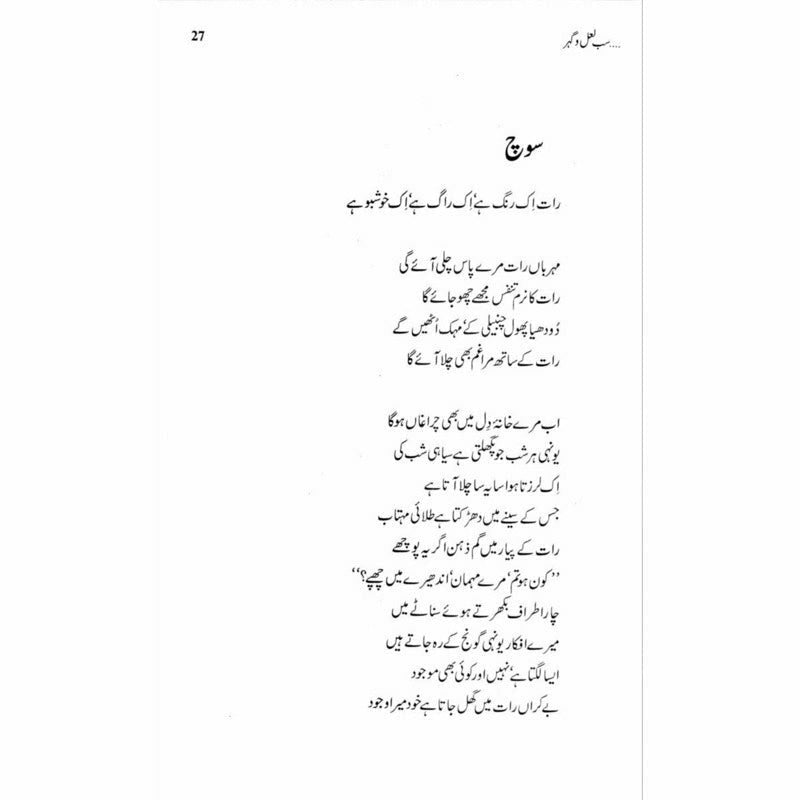 ....سب لعل و گہر
27
سوچ
رات اِک رنگ ہے‘ اِک راگ ہے‘ اِک خوشبو ہے
مہرباں رات مرے پاس چلی آئے گی
رات کا نرم تنفس مجھے چھو جائے گا
دُودھیا پھول چنبیلی کے‘ مہک اُٹھیں گے
رات کے ساتھ مرا غم بھی چلا آئے گا
اب مرے خانۂ دِل میں بھی چراغاں ہوگا
یونہی ہر شب جو پگھلتی ہے سیاہی شب کی
اِک لرزتا ہوا سایہ سا چلا آتا ہے
جس کے سینے میں دھڑکتا ہے طلائی مہتاب
رات کے پیار میں گم ذہن اگر یہ پوچھے
’’کون ہو تم‘ مرے مہمان‘ اندھیرے میں چھپے؟‘‘
چار اطراف بکھرتے ہوئے سناٹے میں
میرے افکار یونہی گونج کے رہ جاتے ہیں
ایسا لگتا ہے‘ نہیں اور کوئی بھی موجود
بے کراں رات میں گھل جاتا ہے خود میرا وجود